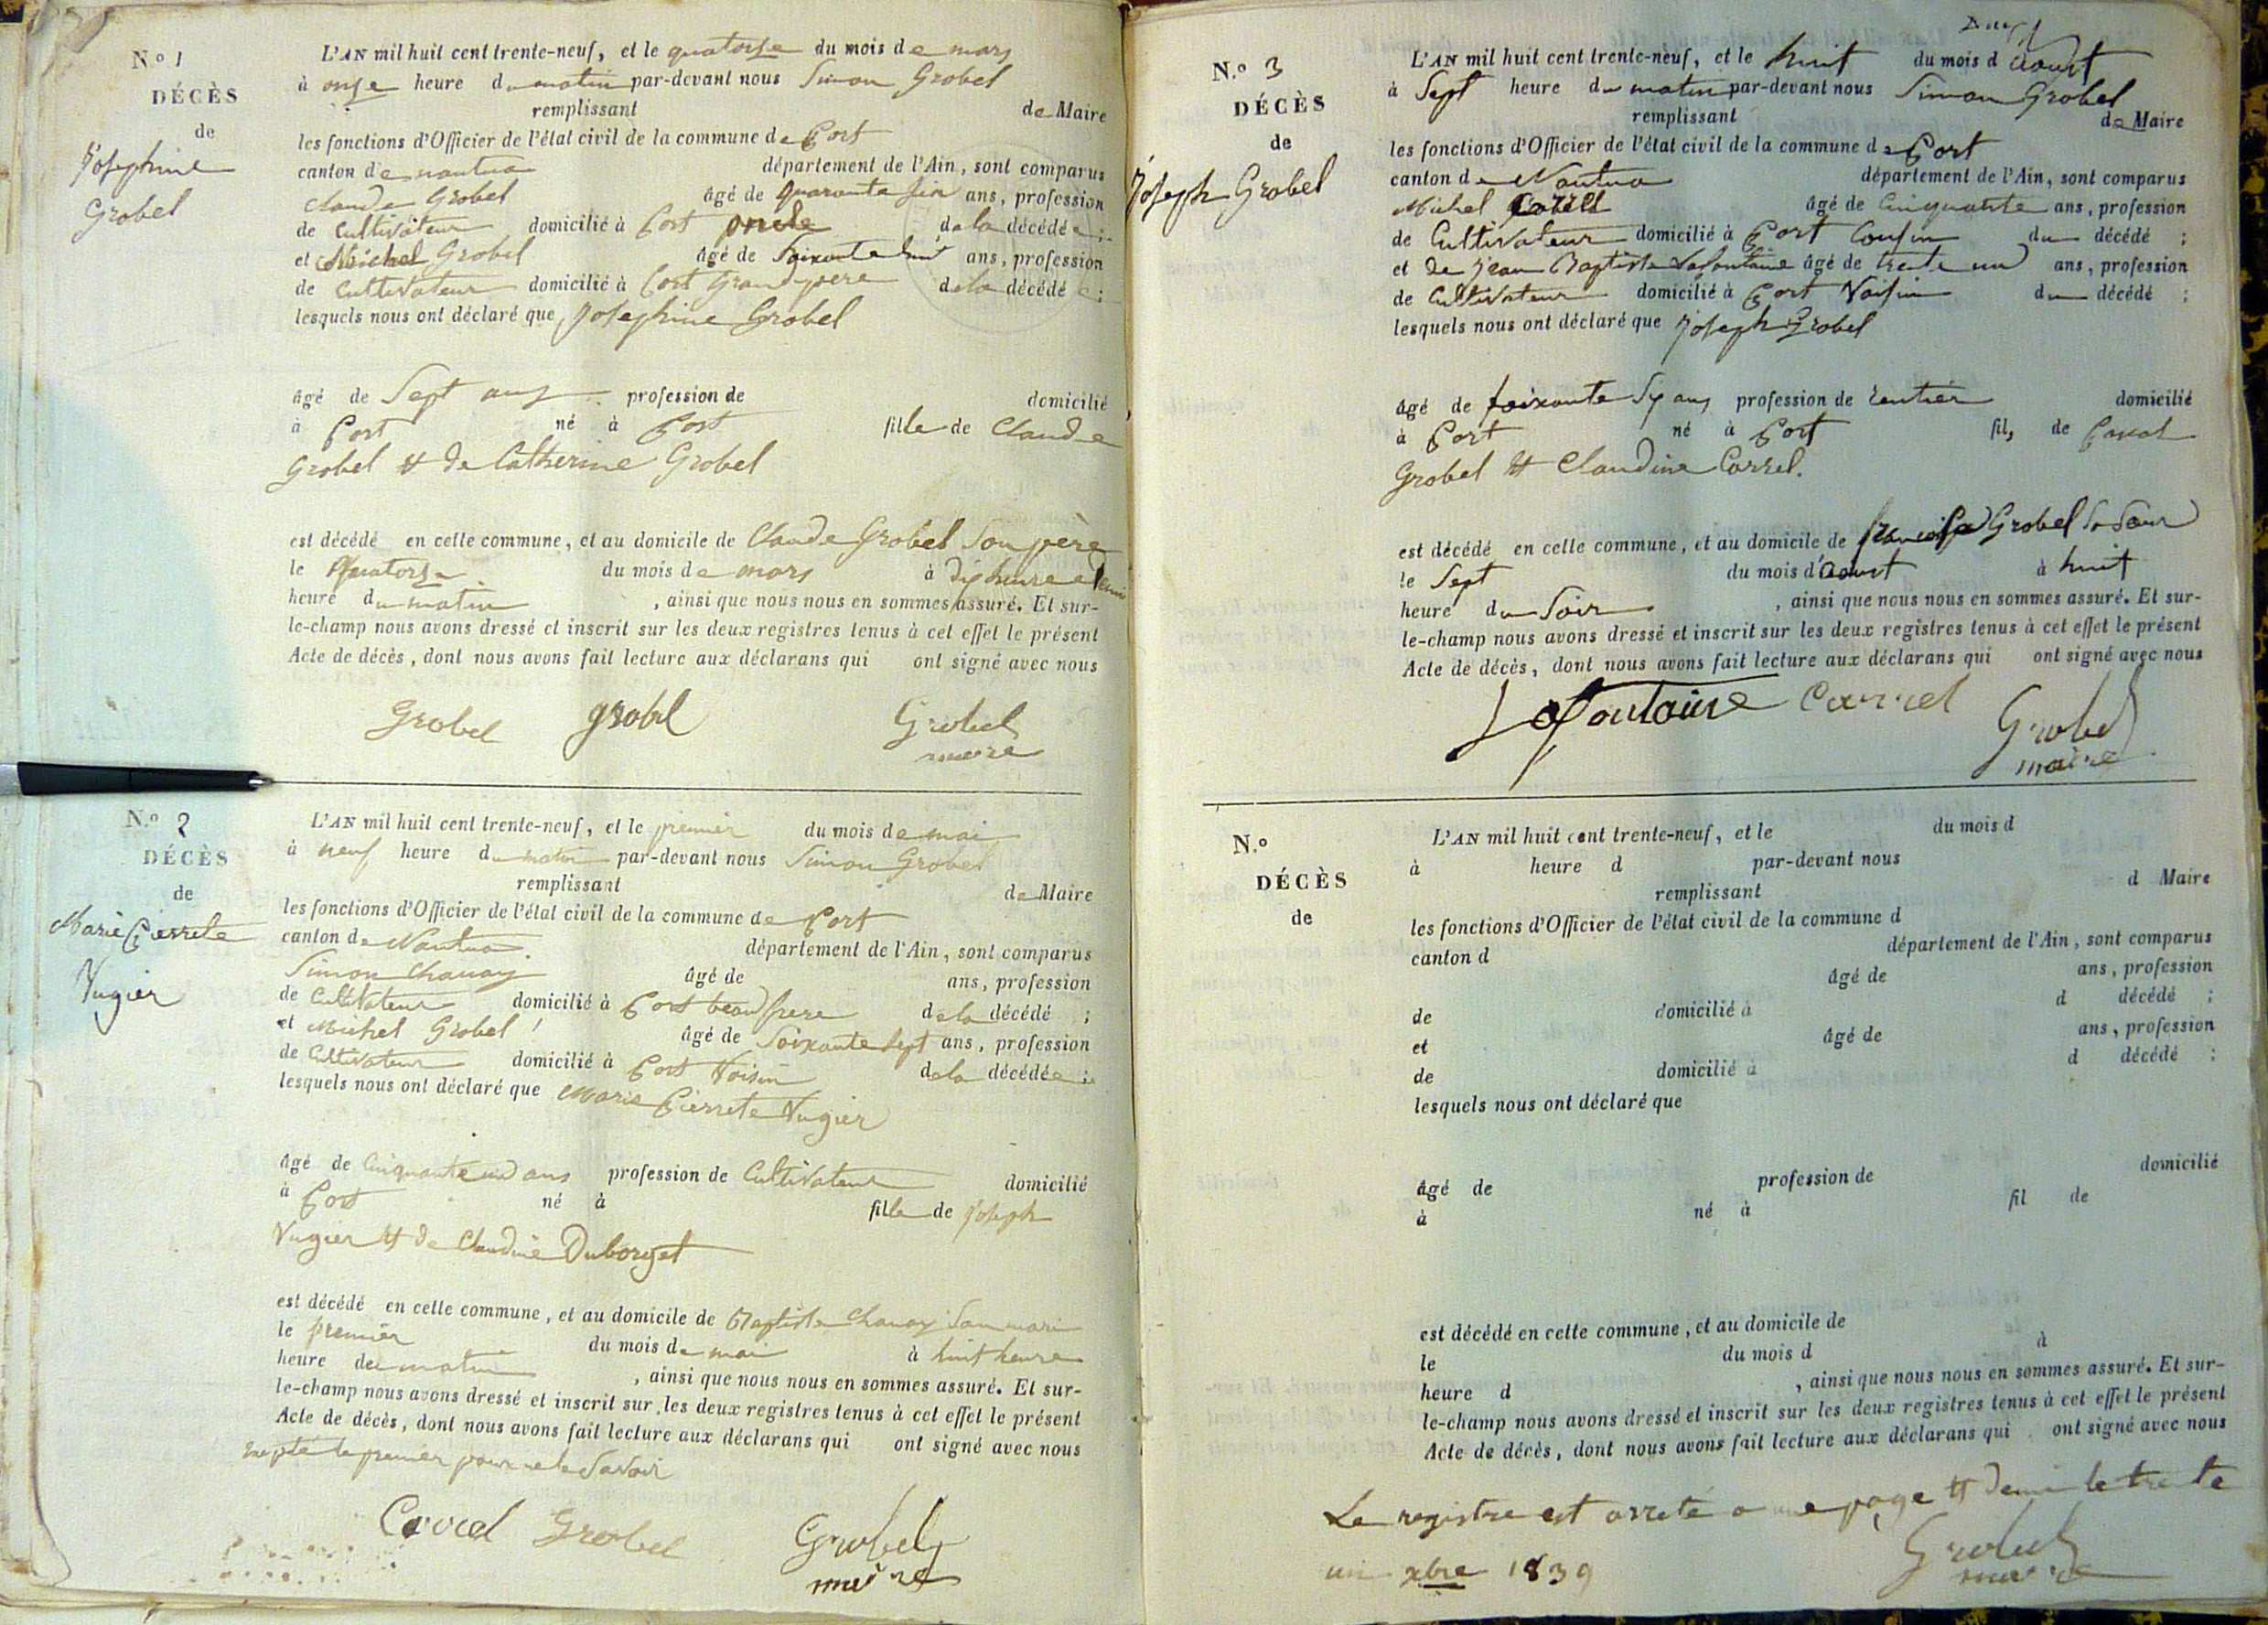 N.º 1
DÉCÈS
de
Josephine
Grobel
L'AN mil huit cent trente-neuf, et le quatorse du mois de mars
à onse heure du matin par-devant nous Simon Grobel
remplissant de Maire
les fonctions d'Officier de l'état civil de la commune de Port
canton de nantua département de l'Ain, sont comparus
Claude Grobel âgé de quarante six ans, profession
de Cultivateur domicilié à Port oncle de la décédée ;
et Michel Grobel âgé de Soixante huit ans, profession
de Cultivateur domicilié à Port Grand père de la décédée ;
lesquels nous ont déclaré que Josephine Grobel
âgé de Sept ans profession de domicilié
à Port né à Port fille de Claude
Grobel et de Catherine Grobel
est décédé en celle commune, et au domicile de Claude Grobel Son père
le quatorse du mois de mars à dix heure et demi
heure du matin , ainsi que nous nous en sommes assuré. Et sur-
le-champ nous avons dressé et inscrit sur les deux registres tenus à cet effet le présent
Acte de décès, dont nous avons fait lecture aux déclarans qui ont signé avec nous
Grobel grobel Grobel
maire
N.º 2
DÉCÈS
de
Marie Pierrete
Vugier
L'AN mil huit cent trente-neuf, et le premier du mois de mai
à neuf heure du matin par-devant nous Simon Grobel
remplissant de Maire
les fonctions d'Officier de l'état civil de la commune de Port
canton de Nantua département de l'Ain, sont comparus
Simon Chanay âgé de ans, profession
de Cultivateur domicilié à Port beau frere de la décédé ;
et Michel Grobel âgé de Soixante Sept ans, profession
de Cultivateur domicilié à Port Voisin de la décédée ;
lesquels nous ont déclaré que Marie Pierrete Vugier
âgé de Cinquante un ans profession de Cultivateur domicilié
à Port né à fille de Joseph
Vugier et de Claudine Duborget
est décédé en celle commune, et au domicile de Baptiste Chanay Son mari
le premier du mois de mai à huit heure
heure de matin , ainsi que nous nous en sommes assuré. Et sur-
le-champ nous avons dressé et inscrit sur les deux registres tenus à cet effet le présent
Acte de décès, dont nous avons fait lecture aux déclarans qui ont signé avec nous
excepté le premier pour ne le Savoir
Carrel Grobel Grobel
maire
N.º 3
DÉCÈS
de
Joseph Grobel
L'AN mil huit cent trente-neuf, et le huit du mois d aoust
à Sept heure du matin par-devant nous Simon Grobel
remplissant de Maire
les fonctions d'Officier de l'état civil de la commune de Port
canton de Nantua département de l'Ain, sont comparus
Michel Carrel âgé de Cinquante ans, profession
de Cultivateur domicilié à Port Cousin du décédé ;
et de Jean Baptiste Lafontaine âgé de trente un ans, profession
de Cultivateur domicilié à Port Voisin du décédé ;
lesquels nous ont déclaré que Joseph Grobel
âgé de Soixante Six ans profession de rentier domicilié
à Port né à Port fils de
Grobel et Claudine Carrel.
est décédé en celle commune, et au domicile de francoise Grobel Sa Sœur
le Sept du mois d'aoust à huit
heure du Soir , ainsi que nous nous en sommes assuré. Et sur-
le-champ nous avons dressé et inscrit sur les deux registres tenus à cet effet le présent
Acte de décès, dont nous avons fait lecture aux déclarans qui ont signé avec nous
Lafontaine Carrel Grobel
maire
N.º
DÉCÈS
de
L'AN mil huit cent trente-neuf, et le du mois d
à heure d par-devant nous
remplissant d Maire
les fonctions d'Officier de l'état civil de la commune d
canton d département de l'Ain, sont comparus
âgé de ans, profession
de domicilié à d décédé ;
et âgé de ans, profession
de domicilié à d décédé ;
lesquels nous ont déclaré que
âgé de profession de domicilié
à né à fil de
est décédé en cette commune, et au domicile de
le du mois d à
heure d , ainsi que nous nous en sommes assuré. Et sur-
le-champ nous avons dressé et inscrit sur les deux registres tenus à cet effet le présent
Acte de décès, dont nous avons fait lecture aux déclarans qui ont signé avec nous
Le registre est arreté a une page et demi le trente
un xbre 1839
Grobel
maire